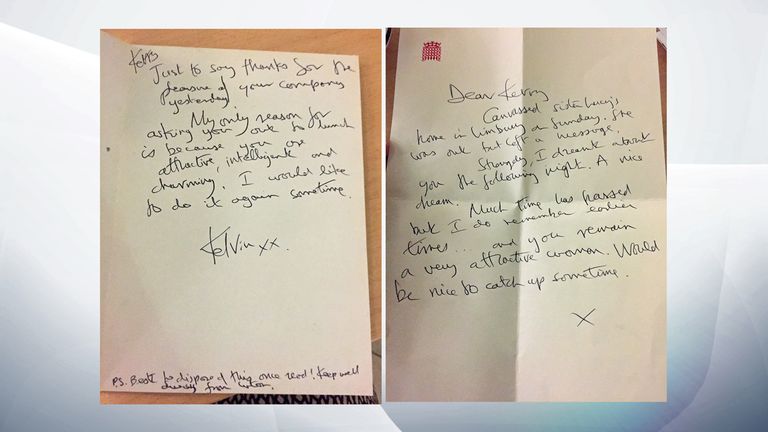 Kerry
Just to say thanks for the
pleasure of your company
yesterday!
My only reason for
asking you out to lunch
is because you are
attractive, intelligent and
charming. I would like
to do it again sometime.
Kelvin xx.
P.S. Best to dispose of this once read! Keep well
away from
Dear Kerry
Canvassed sister
home in Limbury on Sunday. She
was out but left a message.
Strangely, I dreamt about
you the following night. A nice
dream. Much time has passed
but I do remember earlier
times... and you remain
a very attractive woman. Would
be nice to catch up sometime.
X